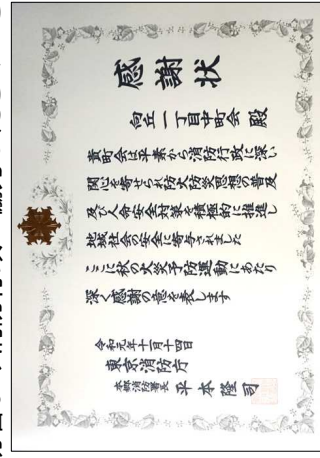 感謝状
向丘一丁目中町会 殿
貴町会は平素から消防行政に深い
関心を寄せられ防火防災思想の普及
及び人命安全対策を積極的に推進し
地域社会の安全に寄与されました
ここに秋の火災予防運動にあたり
深く感謝の意を表します
令和元年十一月十四日
東京消防庁
本郷消防署長 平本隆司